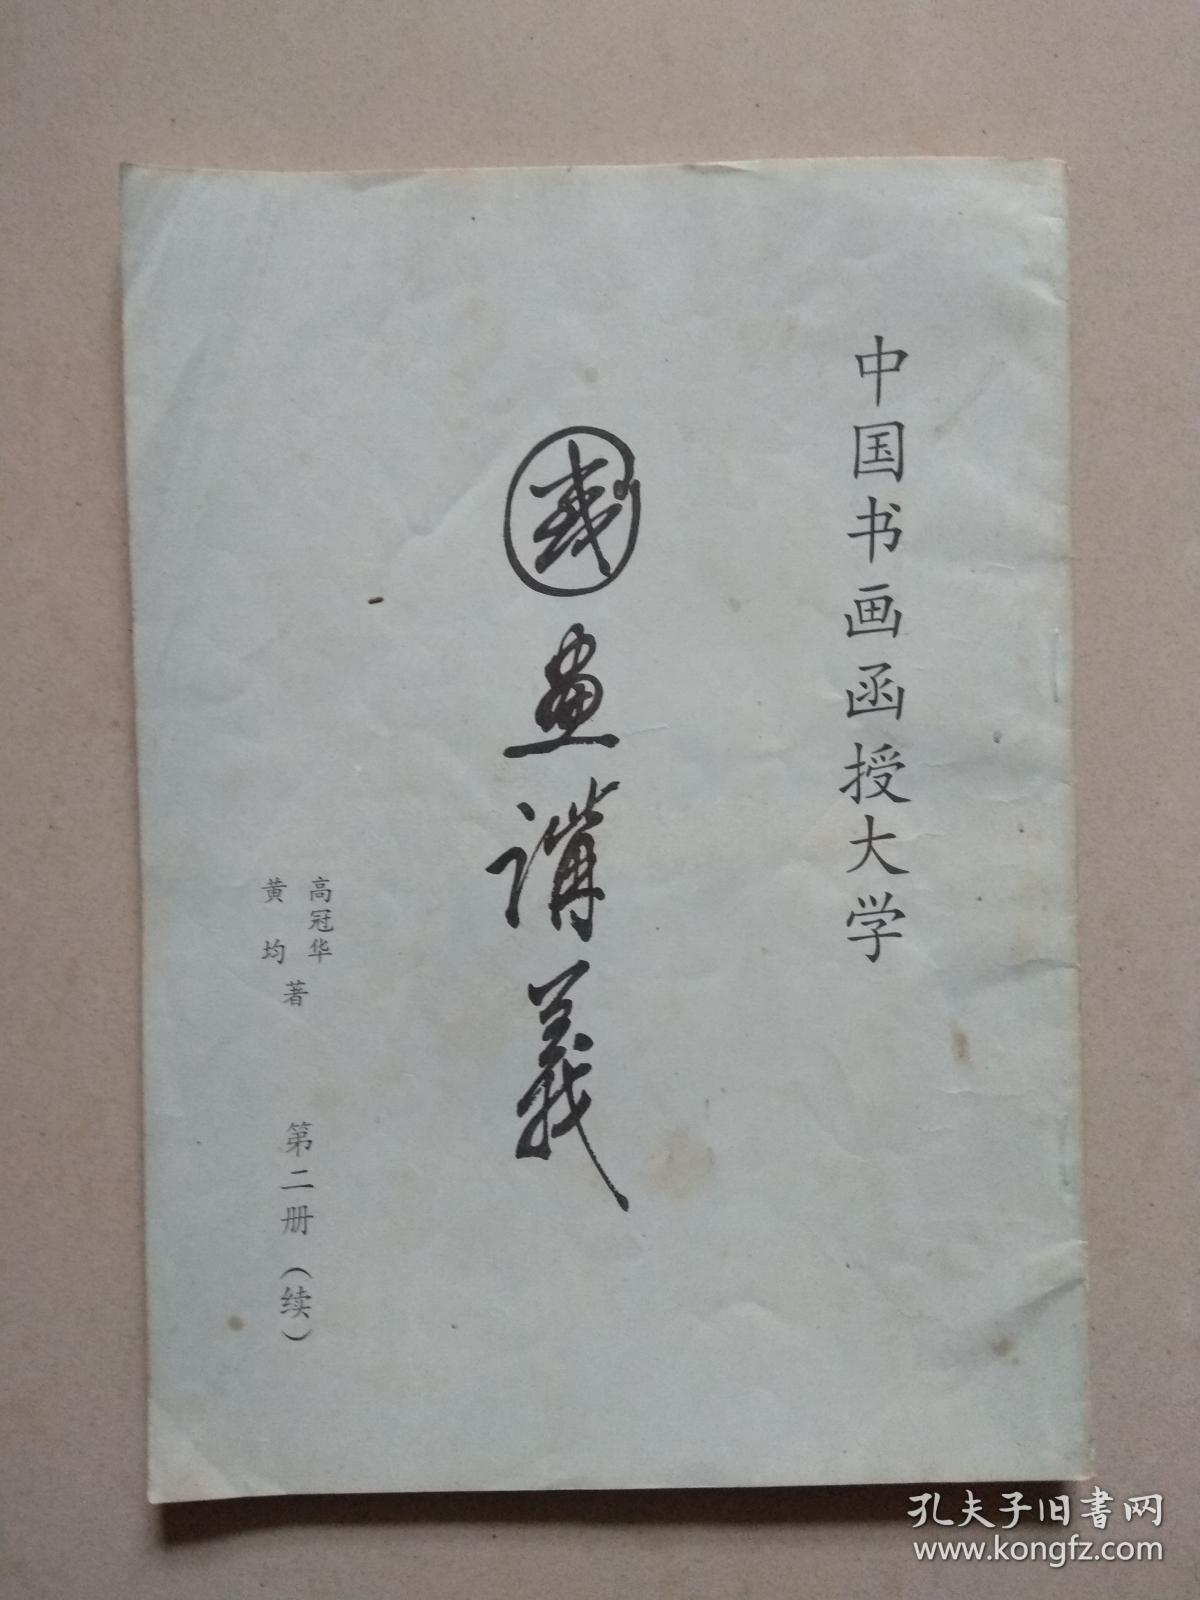 中国书画函授大学
國畫講義
高冠华
黄均
著
第二册（续）
孔夫子旧書网
www.kongfz.com